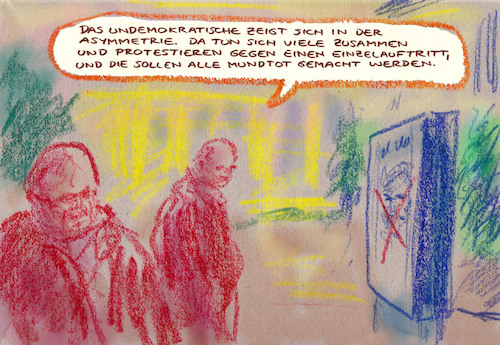 DAS UNDEMOKRATISCHE ZEIGT SICH IN DER
ASYMMETRIE. DA TUN SICH VIELE ZUSAMMEN
UND PROTESTIEREN GEGEN EINEN EINZELAUFTRITT,
UND DIE SOLLEN ALLE MUNDTOT GEMACHT WERDEN.